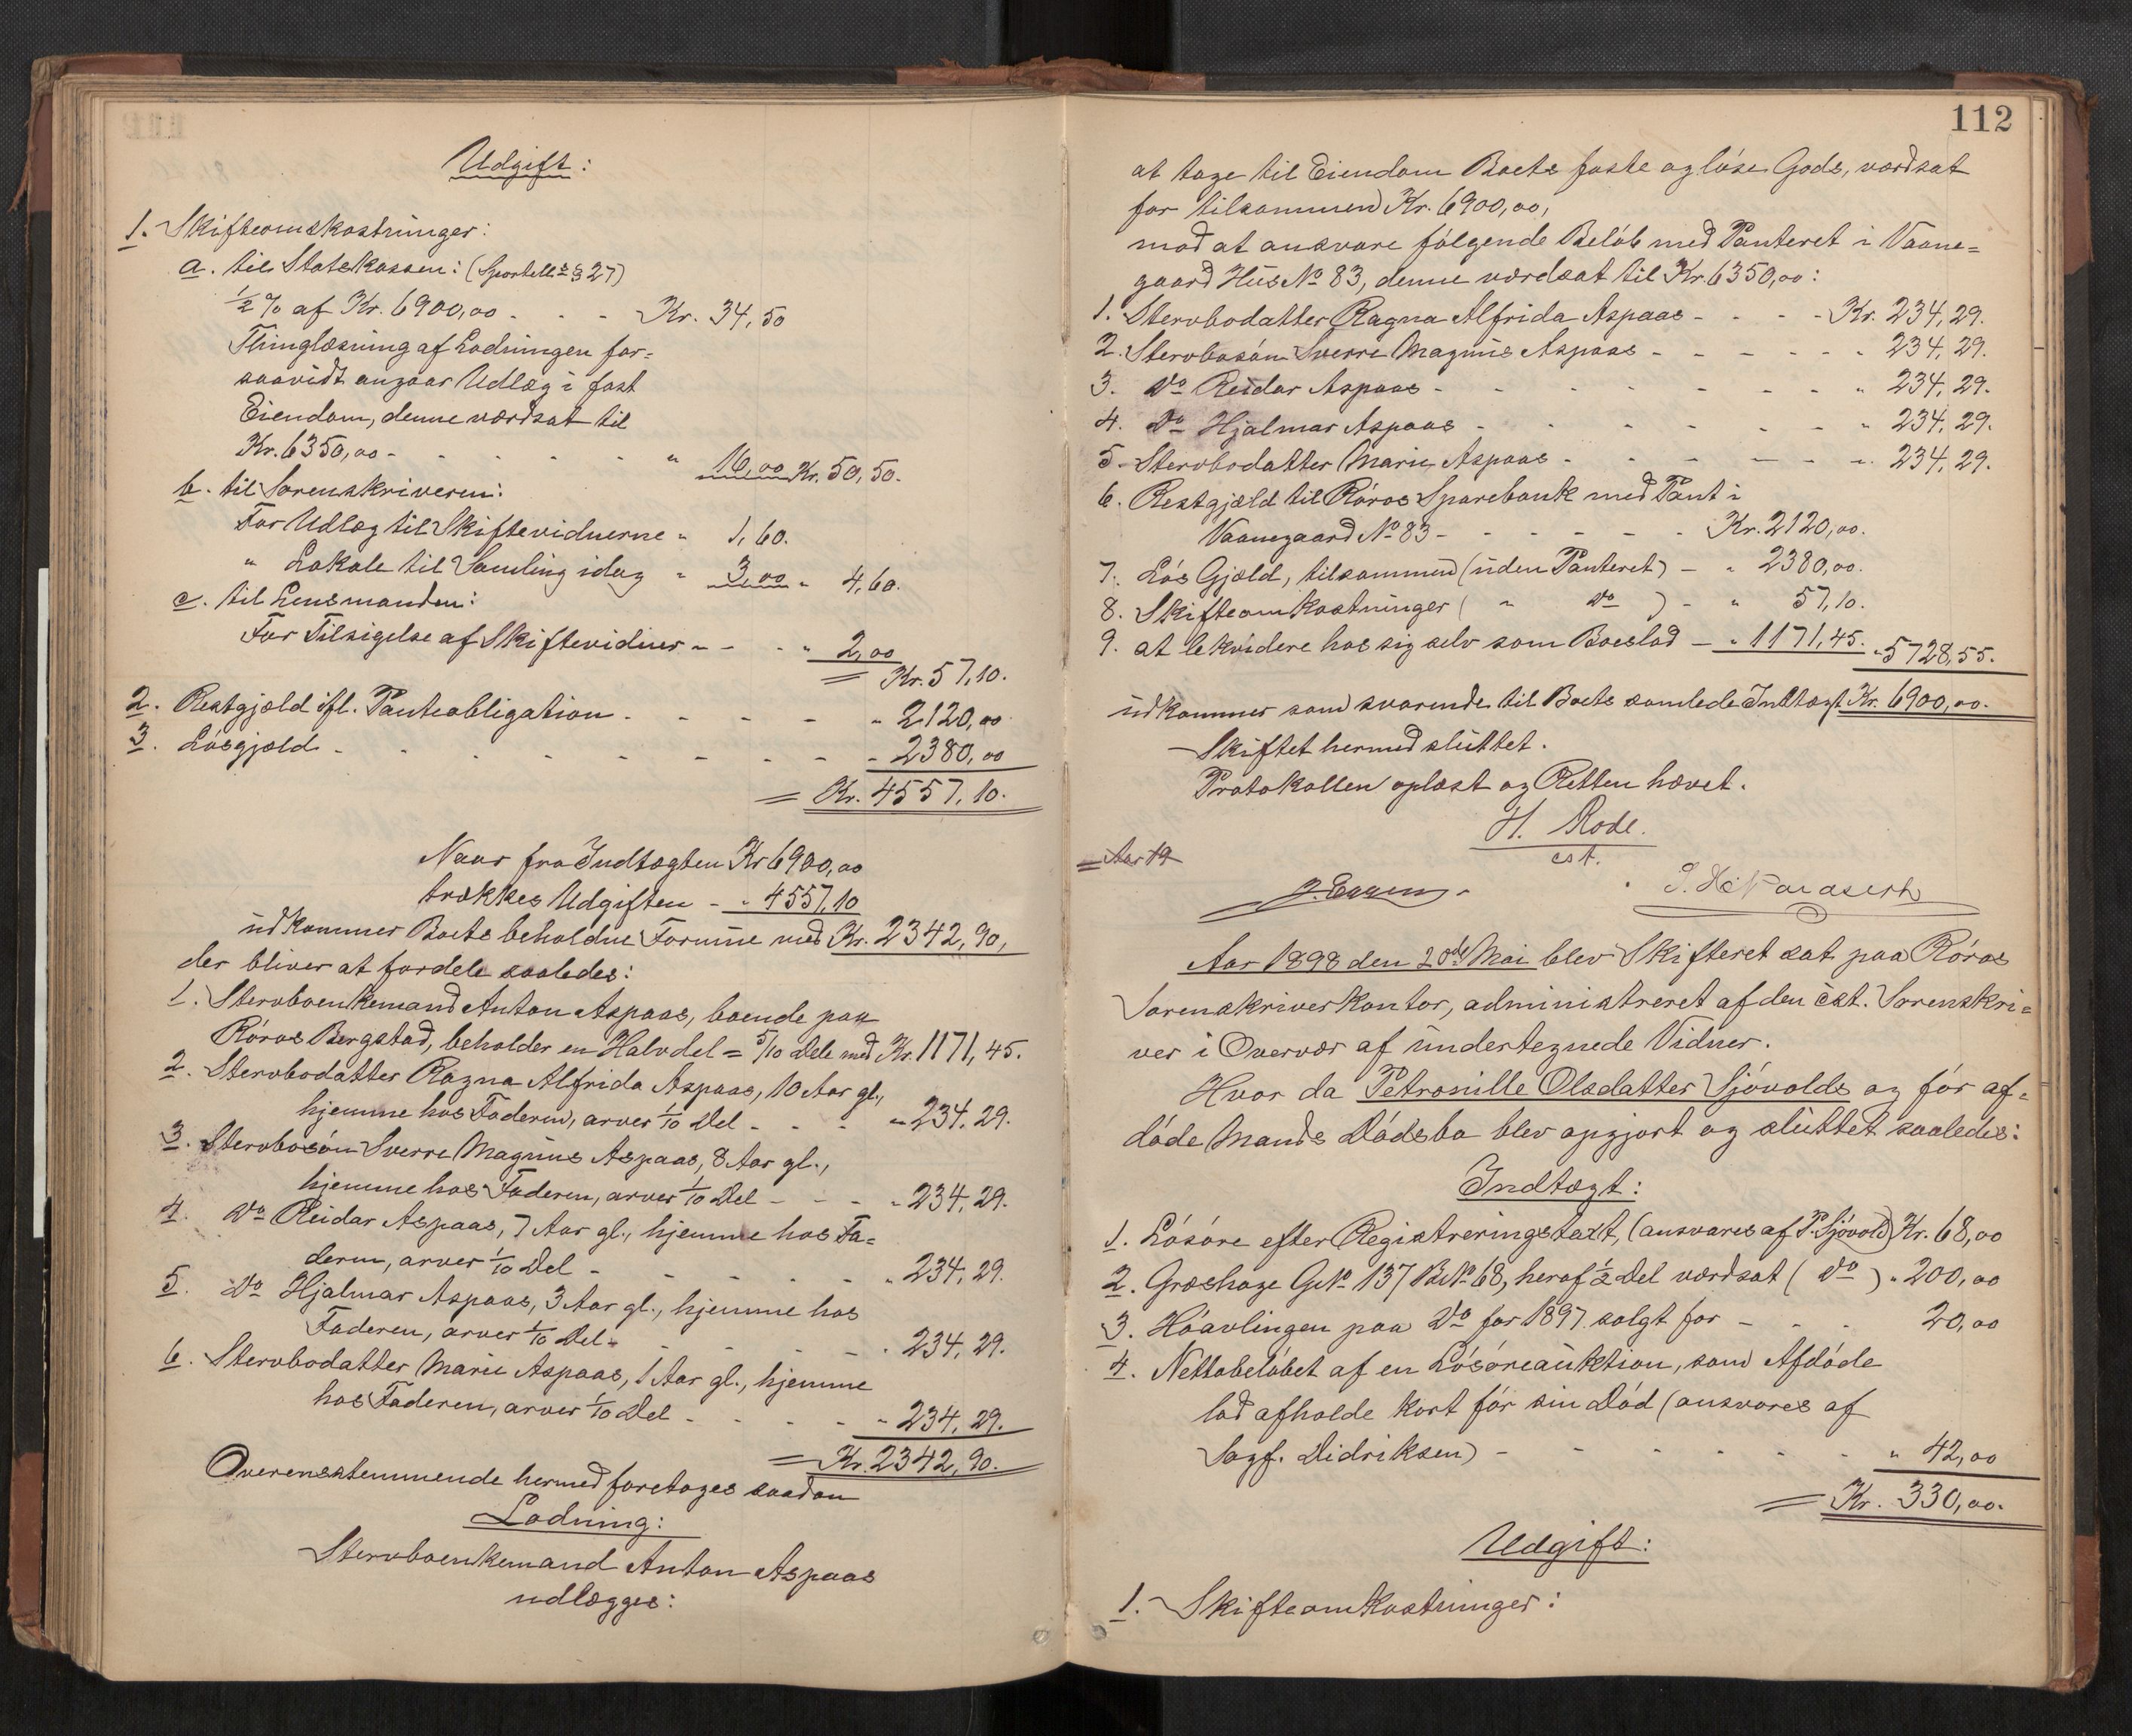 Udgift:
1. Skifteomskostninger:
a. til Statskassen: (Sportell= § 27)
1/2 % af Kr. 6900,00 - - - Kr. 34,50
Thinglæsning af Lodningen for=
saavidt angaar Udlæg i fast
Eiendom, denne værdsat til
Kr. 6350,00 - - - - - " 16,00 Kr. 50,50.
b. til Sorenskriveren:
For Udlæg til Skiftevidnerne " 1,60.
" Lokale til Samling idag " 3,00 " 4,60.
c. til Lensmanden:
For Tilsigelse af Skiftevidner - - - " 2,00
= Kr. 57,10.
2. Restgjæld ifl. Panteobligation - - - - - " 2120,00
3. Løsgjæld - - - - - - - - - 2380,00
= Kr. 4557,10.
Naar fra Indtægten Kr 6900,00
trækkes Udgiften - " 4557,10
udkommer Boets beholdne Formue med Kr. 2342,90,
der bliver at fordele saaledes:
1. Stervboenkemand Anton Aspaas, boende paa
Røros Bergstad, beholder en Halvdel = 5/10 Dele med Kr. 1171,45.
2. Stervbodatter Ragna Alfrida Aspaas, 10 Aar gl.,
hjemme hos Faderen, arver 1/10 Del - - - " 234,29.
3. Stervbosøn Sverre Magnus Aspaas, 8 Aar gl.,
hjemme hos Faderen, arver 1/10 Del - - - " 234,29.
4. Do Reidar Aspaas, 7 Aar gl., hjemme hos Fa=
deren, arver 1/10 Del - - - - - - " 234,29.
5. Do Hjalmar Aspaas, 3 Aar gl., hjemme hos
Faderen, arver 1/10 Del - - - - - " 234,29.
6. Stervbodatter Marie Aspaas, 1 Aar gl., hjemme
hos Faderen, arver 1/10 Del - - - - - " 234,29.
= Kr. 2342,90.
Overensstemmende hermed foretoges saadan
Lodning:
Stervboenkemand Anton Aspaas
udlægges:
112
at tage til Eiendom Boets faste og løse Gods, værdsat
for tilsammen Kr. 6900,00,
mod at ansvare følgende Beløb med Panteret i Vaane=
gaard Hus No 83, denne værdsat til Kr. 6350,00:
1. Stervbodatter Ragna Alfrida Aspaas - - - - Kr. 234,29.
2. Stervbosøn Sverre Magnus Aspaas - - - - - - " 234,29.
3. Do Reidar Aspaas - - - - - - - - " 234,29.
4. Do Hjalmar Aspaas - - - - - - - " 234,29.
5. Stervbodatter Marie Aspaas - - - - - - " 234,29.
6. Restgjæld til Røros Sparebank med Pant i
Vaanegaard No 83 - - - - - - Kr. 2120,00.
7. Løs Gjæld, tilsammen (uden Panteret) - " 2380,00.
8. Skifteomkostninger ( " Do ) - " 57,10.
9. at lekvidere hos sig selv som Boeslod - " 1171,45. " 5728,55.
udkommer som svarende til Boets samlede Indtægt Kr. 6900,00.
Skiftet hermed sluttet.
Protokollen oplæst og Retten hævet.
H. Rode.
cst.
= Aar 19
J. Eggen.
Aar 1898 den 20de Mai blev Skifteret sat paa Røros
Sorenskriverkontor, administreret af den cst. Sorenskri=
ver i Overvær af undertegnede Vidner.
Hvor da Petronille Olsdatter Sjøvolds og før af=
døde Mands Dødsbo blev opgjort og sluttet saaledes:
Indtægt:
1. Løsøre efter Registreringstaxt, (ansvares af P. Sjøvold) Kr. 68,00
2. Græshage G.No 137 B.No 68, heraf 1/2 Del værdsat ( Do ) " 200,00
3. Høavlingen paa Do for 1897 solgt for - - - 20,00
4. Nettobeløbet af en Løsøreauktion, som Afdøde
lod afholde kort før sin Død (ansvares af
Sagf. Didriksen) - - - - - - - " 42,00
= Kr. 330,00.
Udgift:
1. Skifteomkostninger: